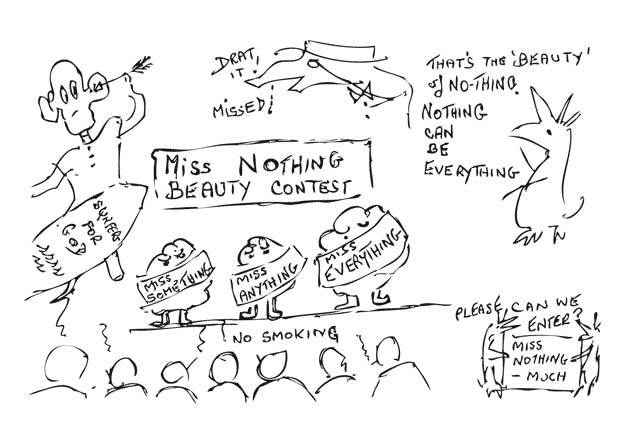 DRAT,
IT
MISSED!
THAT'S THE 'BEAUTY'
of NO-THING.
NOTHING
CAN
BE
EVERYTHING
MISS NOTHING
BEAUTY CONTEST
FOR
GOD
MISS
SOMETHING
MISS
ANYTHING
MISS
EVERYTHING
NO SMOKING
PLEASE, CAN WE
ENTER?
MISS
NOTHING
- MUCH